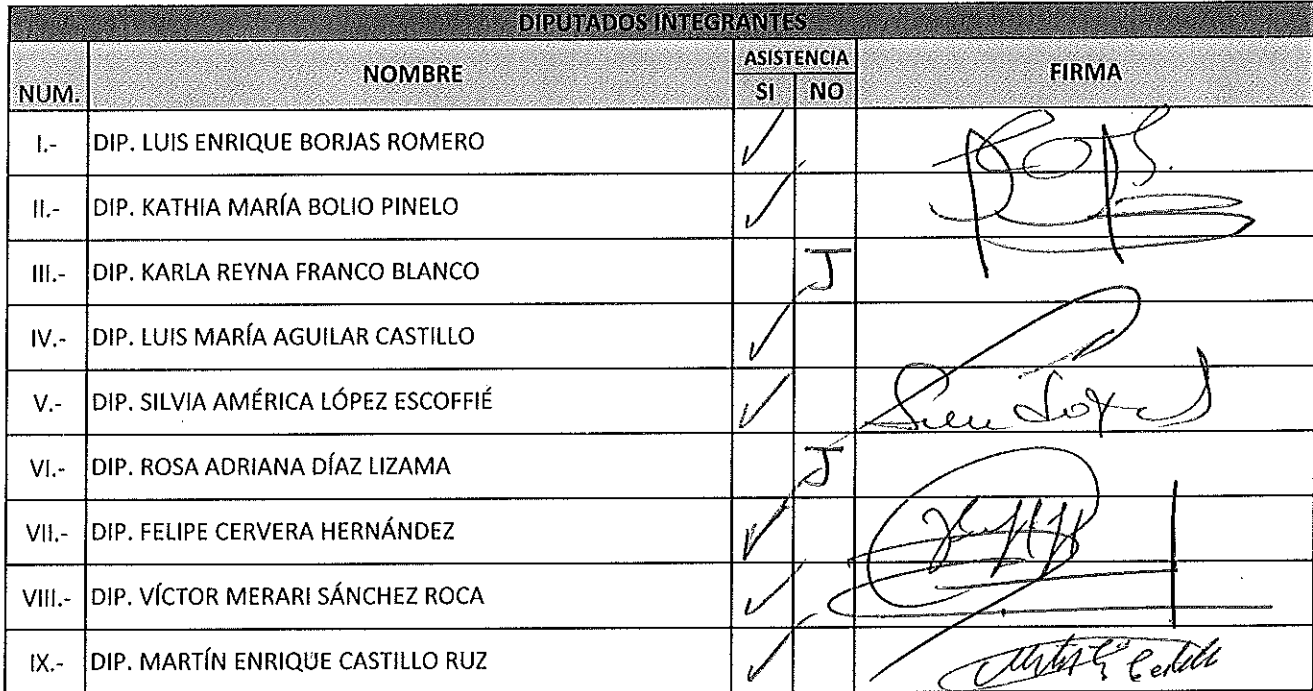 DIPUTADOS INTEGRANTES
NUM. NOMBRE ASISTENCIA SI NO FIRMA
I.- DIP. LUIS ENRIQUE BORJAS ROMERO ✓
II.- DIP. KATHIA MARÍA BOLIO PINELO ✓
III.- DIP. KARLA REYNA FRANCO BLANCO J
IV.- DIP. LUIS MARÍA AGUILAR CASTILLO ✓
V.- DIP. SILVIA AMÉRICA LÓPEZ ESCOFFIÉ ✓
VI.- DIP. ROSA ADRIANA DÍAZ LIZAMA J
VII.- DIP. FELIPE CERVERA HERNÁNDEZ ✓
VIII.- DIP. VÍCTOR MERARI SÁNCHEZ ROCA ✓
IX.- DIP. MARTÍN ENRIQUE CASTILLO RUZ ✓